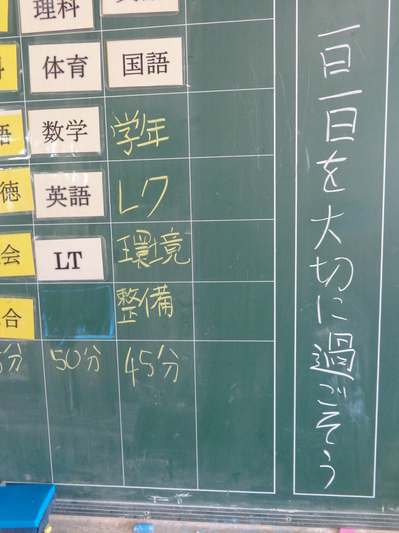 理科
体育
国語
数学
学年
英語
レク
徳
LT
環境
会
整備
合
50分
45分
分
一日一日を大切に過ごそう